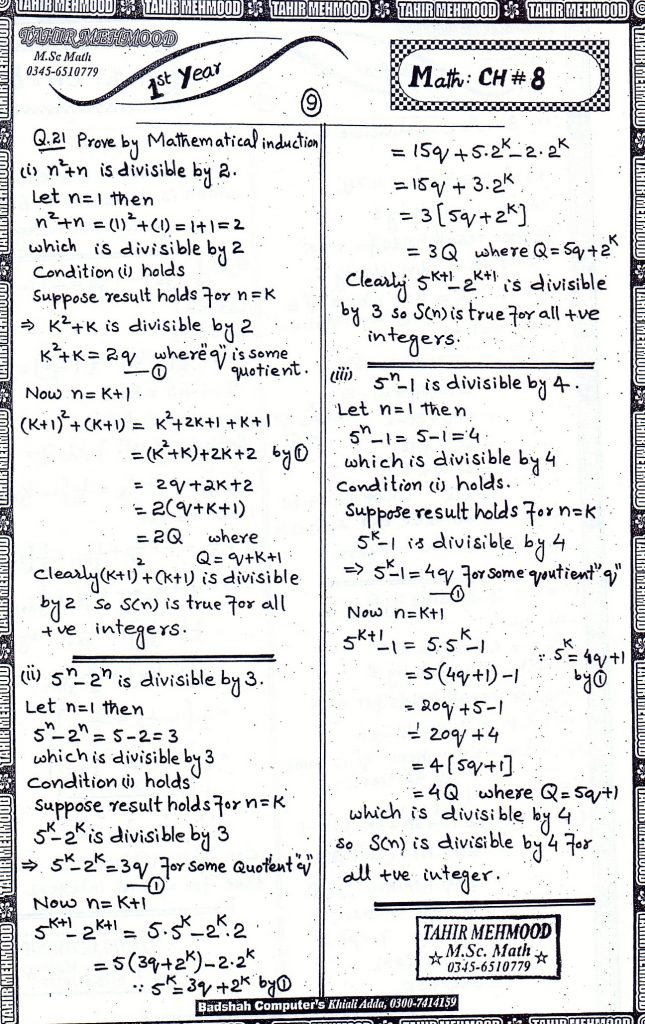 TAHIR MEHMOOD TAHIR MEHMOOD TAHIR MEHMOOD TAHIR MEHMOOD TAHIR MEHMOOD
TAHIR MEHMOOD
M.Sc Math
0345-6510779
1st Year
Math: CH # 8
9
Q.21 Prove by Mathematical induction
(i) n²+n is divisible by 2.
Let n=1 then
n²+n = (1)²+(1) = 1+1 = 2
which is divisible by 2
Condition (i) holds
Suppose result holds for n=K
⇒ K²+K is divisible by 2
K²+K = 2q where "q" is some
quotient.
—①
Now n=K+1.
(K+1)²+(K+1) = K²+2K+1+K+1
=(K²+K)+2K+2 by①
= 2q+2K+2
= 2(q+K+1)
= 2Q where
Q = q+K+1
Clearly (K+1)²+(K+1) is divisible
by 2 so S(n) is true for all
+ve integers.
(ii) 5ⁿ-2ⁿ is divisible by 3.
Let n=1 then
5ⁿ-2ⁿ = 5-2 = 3
which is divisible by 3
Condition (i) holds
Suppose result holds for n=K
5ᴷ-2ᴷ is divisible by 3
⇒ 5ᴷ-2ᴷ=3q for some Quotent "q"
—①
Now n=K+1
5ᴷ⁺¹-2ᴷ⁺¹ = 5·5ᴷ-2ᴷ·2
= 5(3q+2ᴷ)-2·2ᴷ
∵ 5ᴷ=3q+2ᴷ by①
= 15q+5·2ᴷ-2·2ᴷ
= 15q+3·2ᴷ
= 3[5q+2ᴷ]
= 3Q where Q=5q+2ᴷ
Clearly 5ᴷ⁺¹-2ᴷ⁺¹ is divisible
by 3 so S(n) is true for all +ve
integers.
(iii) 5ⁿ-1 is divisible by 4.
Let n=1 then
5ⁿ-1 = 5-1 = 4
which is divisible by 4
Condition (i) holds.
Suppose result holds for n=K
5ᴷ-1 is divisible by 4
⇒ 5ᴷ-1=4q for some qoutient "q"
—①
Now n=K+1
5ᴷ⁺¹-1 = 5·5ᴷ-1 ∵ 5ᴷ=4q+1
by①
= 5(4q+1)-1
= 20q+5-1
= 20q+4
= 4[5q+1]
= 4Q where Q=5q+1
which is divisible by 4
so S(n) is divisible by 4 for
all +ve integer.
TAHIR MEHMOOD
M.Sc. Math
0345-6510779
Badshah Computer's Khiali Adda, 0300-7414159